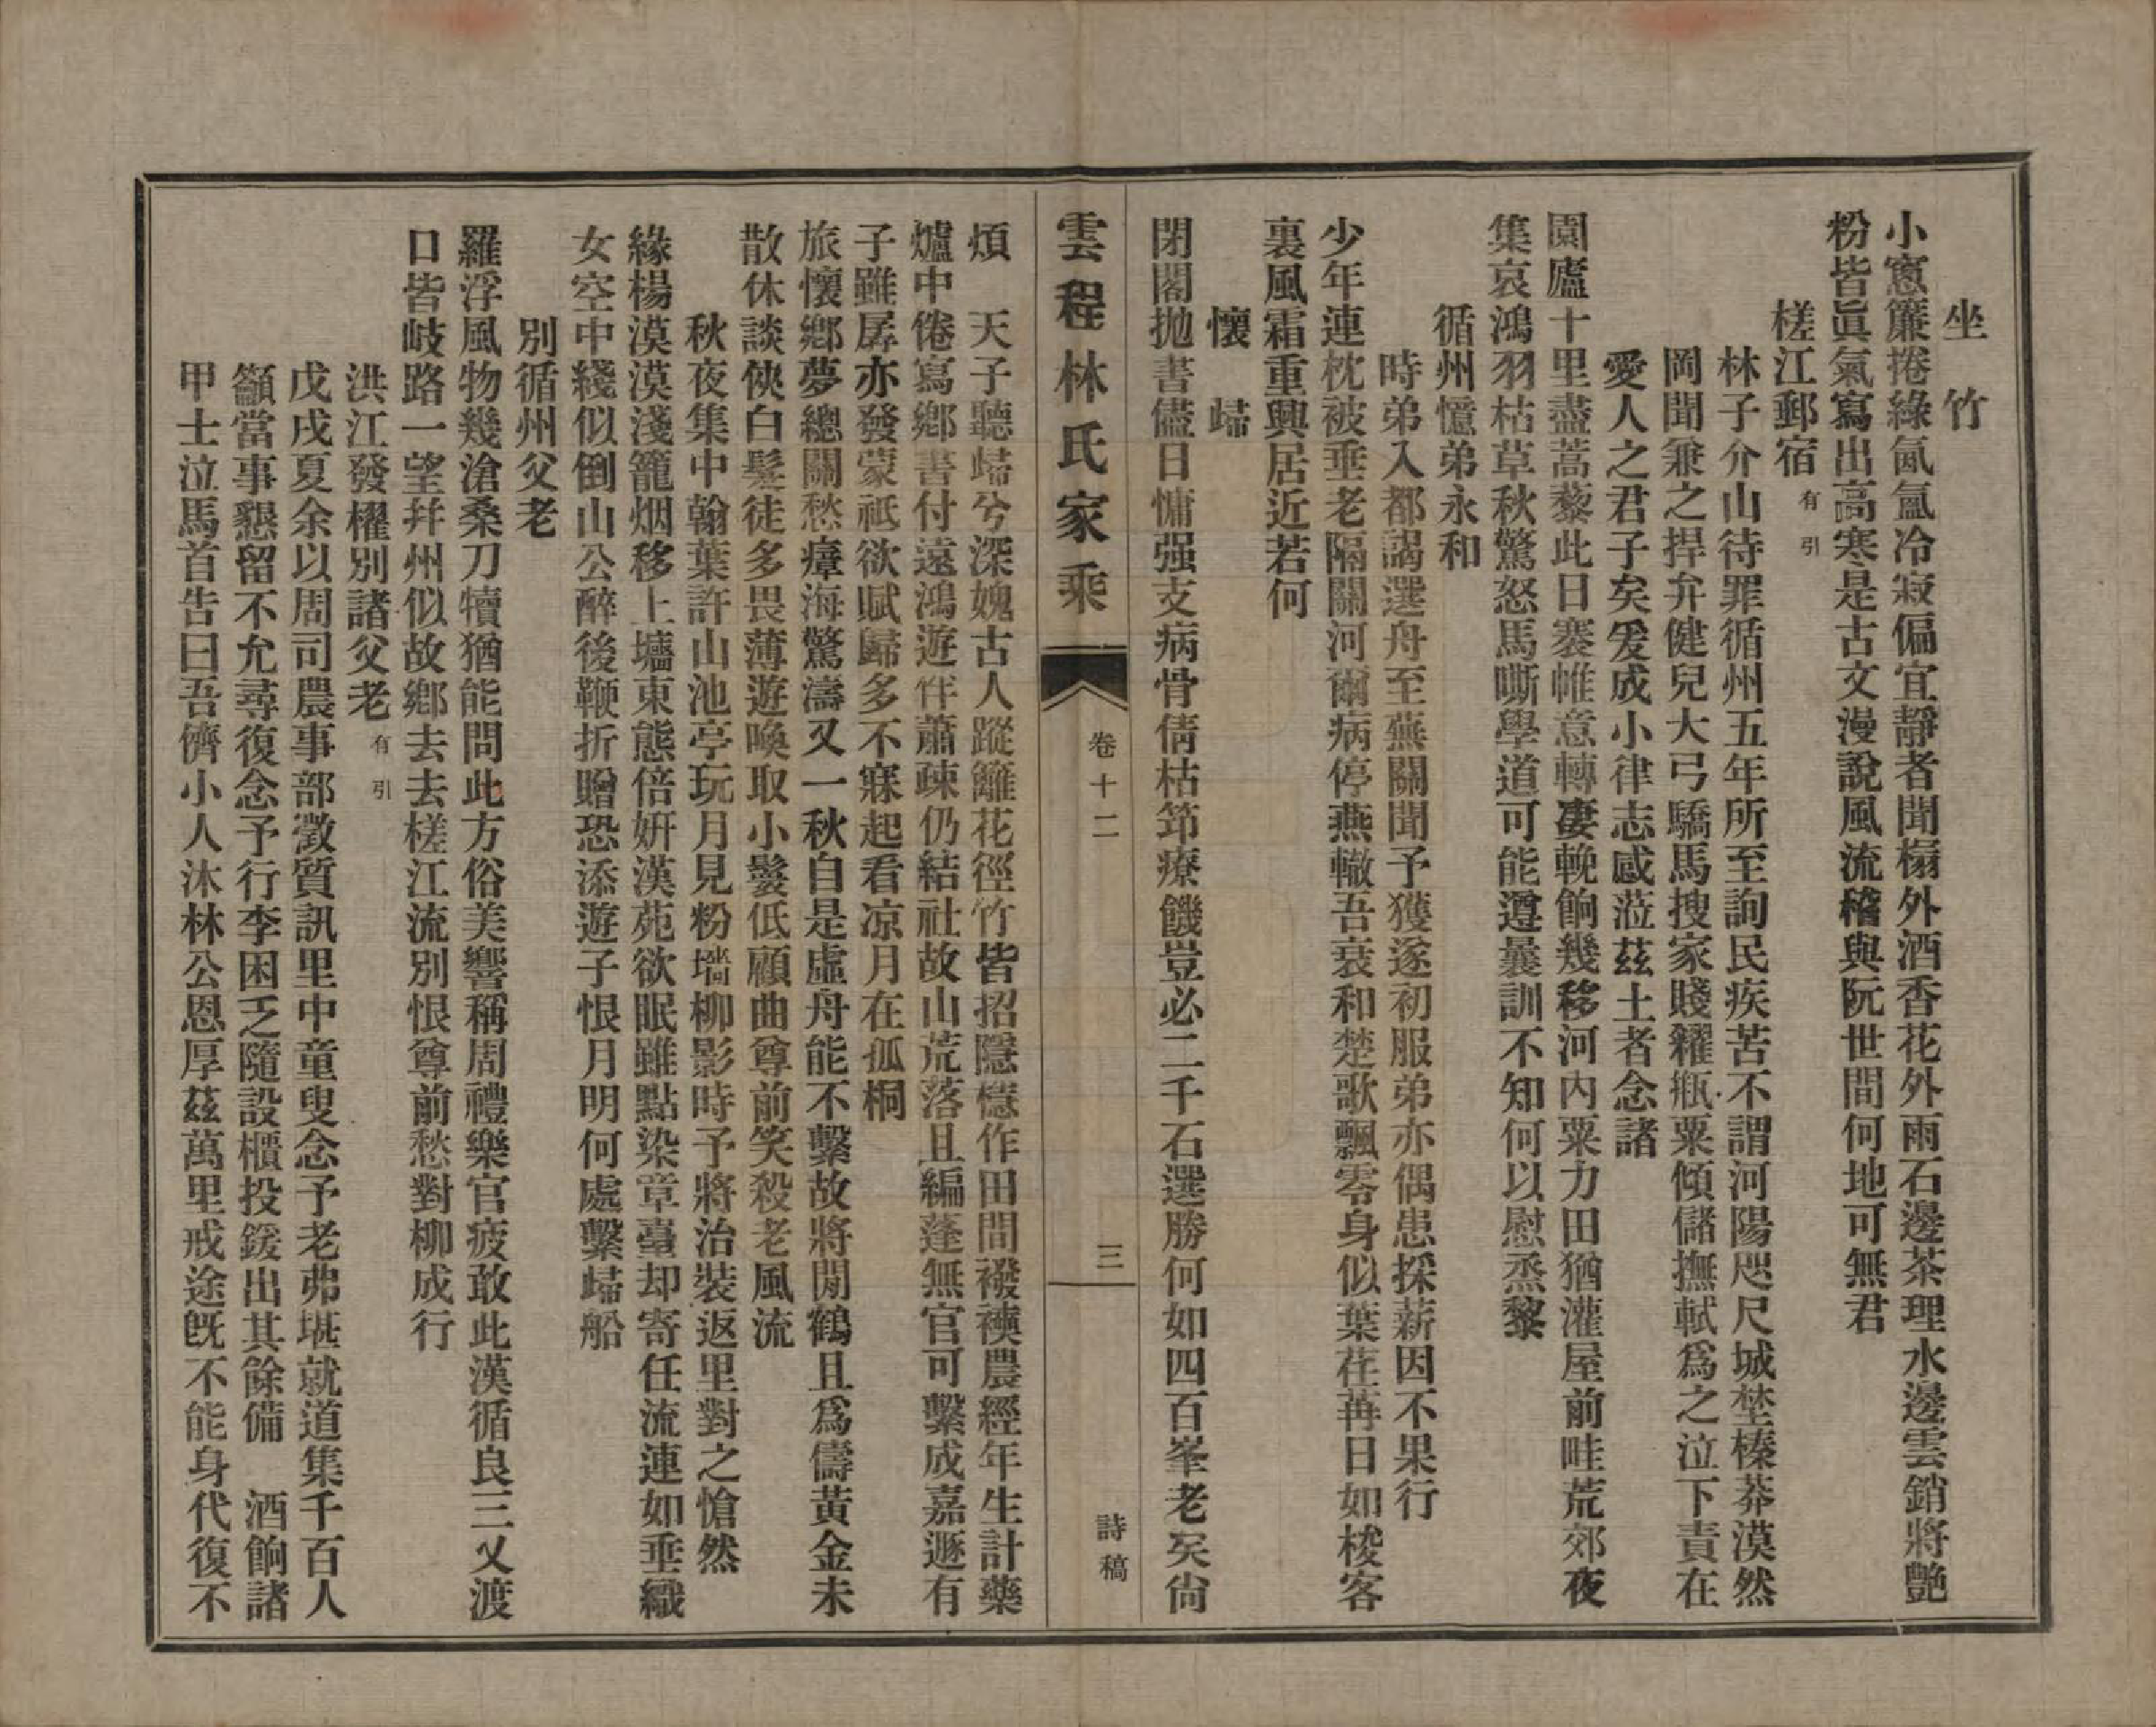 坐竹
小窻簾捲綠氤氳冷寂偏宜靜者聞榻外酒香花外雨石邊茶理水邊雲銷將艷
粉皆眞氣寫出高寒是古文漫說風流稽與阮世間何地可無君
槎江郵宿有引
林子介山待罪循州五年所至詢民疾苦不謂河陽咫尺城埜榛莽漠然
岡聞兼之捍弁健兒大弓驕馬搜家賤糴瓶粟傾儲撫軾爲之泣下責在
愛人之君子矣爰成小律志感蒞茲土者念諸
園廬十里盡蒿藜此日褰帷意轉凄輓餉幾移河內粟力田猶灌屋前畦荒郊夜
集哀鴻羽枯草秋驚怒馬嘶學道可能遵曩訓不知何以慰烝黎
循州憶弟永和
時弟入都謁選舟至蕪關聞予獲遂初服弟亦偶患採薪因不果行
少年連枕被垂老隔關河爾病停燕轍吾衰和楚歌飄零身似葉荏苒日如梭客
裏風霜重興居近若何
懷歸
閉閣拋書儘日慵强支病骨倩枯笻療饑豈必二千石選勝何如四百峯老矣尙
雲程林氏家乘
卷十二
三
詩稿
煩　天子聽歸兮深媿古人蹤籬花徑竹皆招隱檍作田間襏襫農經年生計藥
爐中倦寫鄉書付遠鴻遊伴蕭疎仍結社故山荒落且編蓬無官可繫成嘉遯有
子雖孱亦發蒙祗欲賦歸多不寐起看凉月在孤桐
旅懷鄉夢總關愁瘴海驚濤又一秋自是虛舟能不繫故將閒鶴且爲儔黃金未
散休談俠白髮徒多畏薄遊喚取小鬟低顧曲尊前笑殺老風流
秋夜集中翰葉許山池亭玩月見粉墻柳影時予將治裝返里對之愴然
緣楊漠漠淺籠烟移上墻東態倍姸漢苑欲眠雖點染章臺却寄任流連如垂織
女空中綫似倒山公醉後鞭折贈恐添遊子恨月明何處繫歸船
別循州父老
羅浮風物幾滄桑刀犢猶能問此方俗美響稱周禮樂官疲敢此漢循良三乂渡
口皆岐路一望幷州似故鄉去去槎江流別恨尊前愁對柳成行
洪江發櫂別諸父老有引
戊戌夏余以周司農事部徵質訊里中童叟念予老弗堪就道集千百人
籲當事懇留不允尋復念予行李困乏隨設櫃投鍰出其餘備　酒餉諸
甲士泣馬首告曰吾儕小人沐林公恩厚茲萬里戒途旣不能身代復不